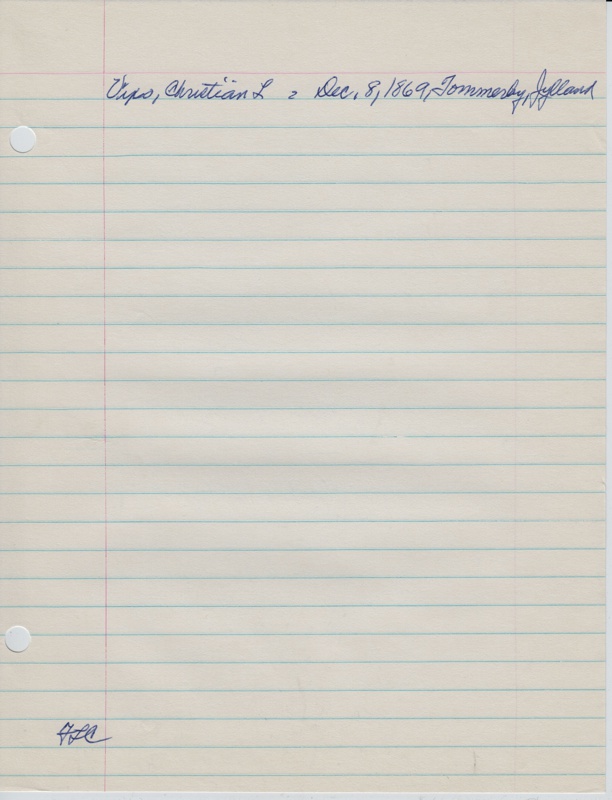 Vips, Christian L = Dec. 8, 1869, Tommerby, Jylland
FLC